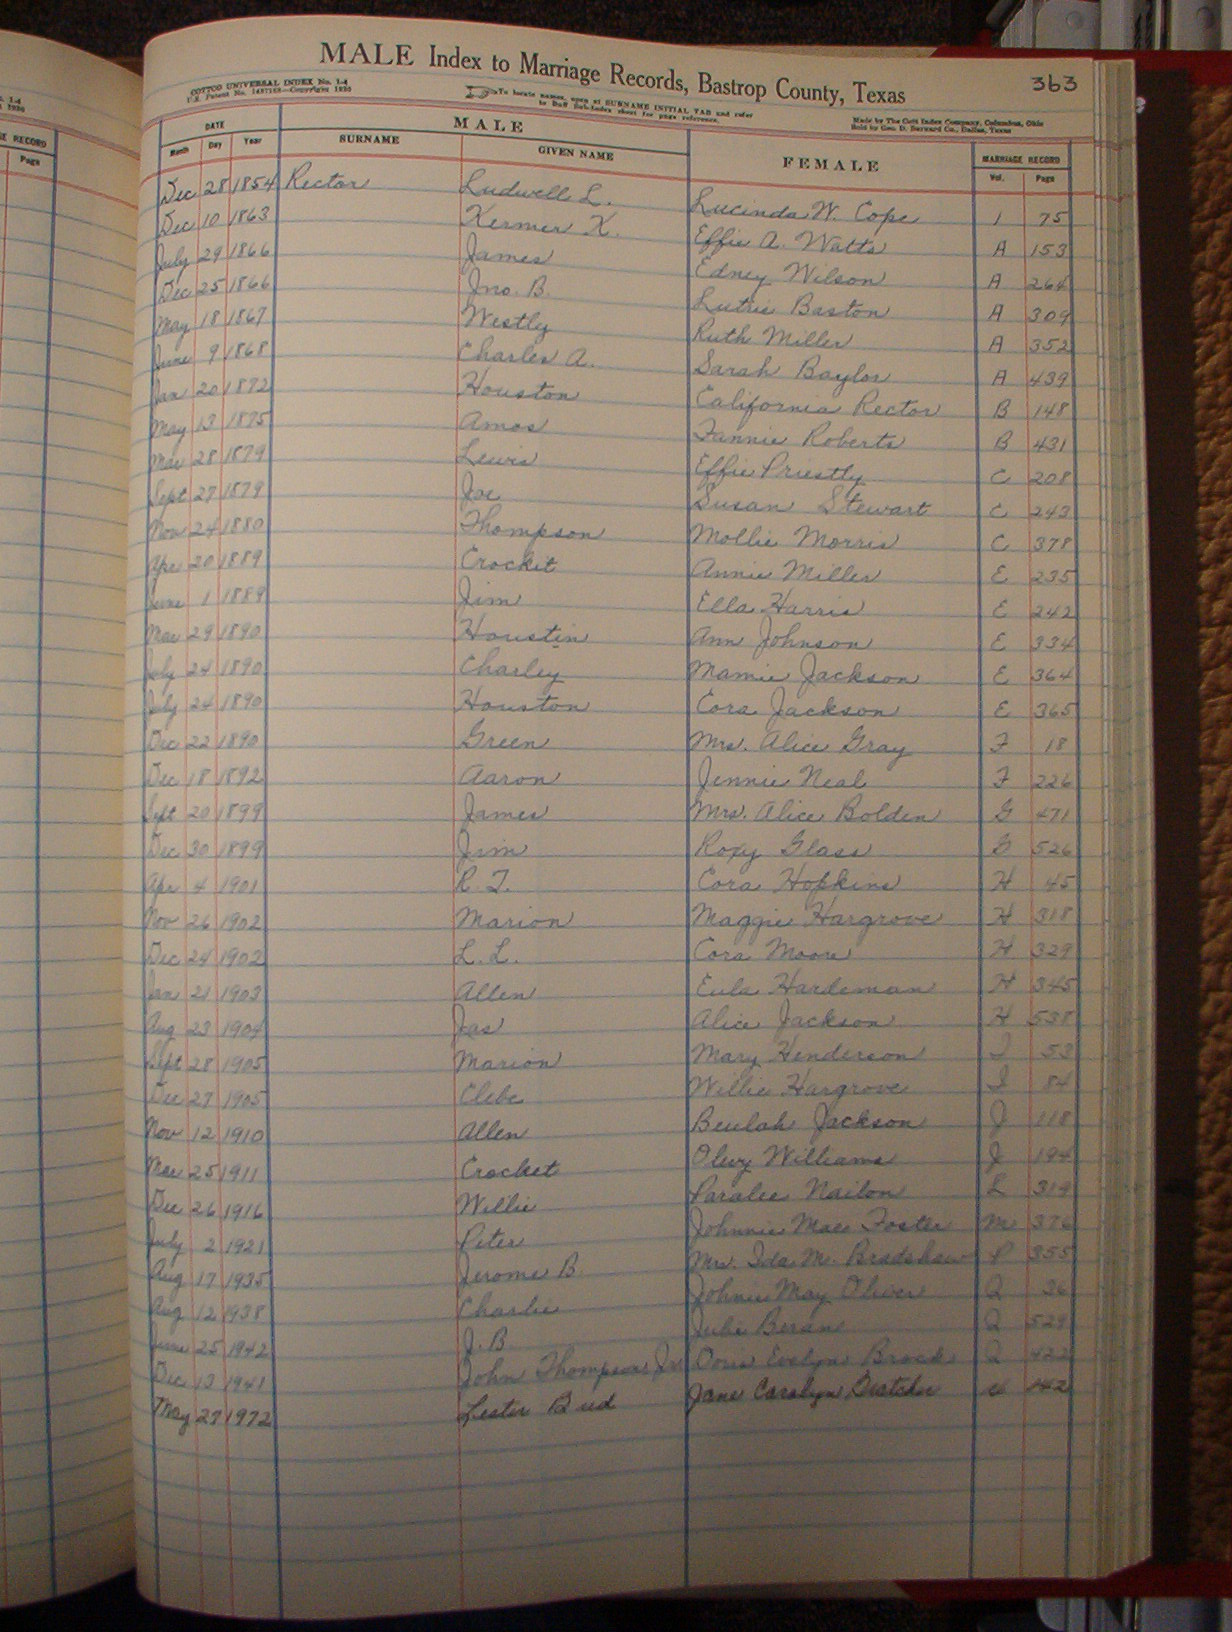 MALE Index to Marriage Records, Bastrop County, Texas 363
COTTCO UNIVERSAL INDEX No. 1-4
U.S. Patent No. 1497188—Copyright 1930
To locate names, open at SURNAME INITIAL TAB and refer
to Buff Sub-Index sheet for page reference.
Made by The Cott Index Company, Columbus, Ohio
Sold by Geo. D. Barnard Co., Dallas, Texas
RECORD
Page
DATE MALE FEMALE MARRIAGE RECORD
Month Day Year SURNAME GIVEN NAME Vol. Page
Dec 28 1854 Rector Ludwell L. Lucinda W. Cope 1 75
Dec 10 1863 Kermer K. Effie A. Watts A 153
July 29 1866 James Edney Wilson A 264
Dec 25 1866 Jno. B. Lutie Baston A 309
May 18 1867 Westly Ruth Miller A 352
June 9 1868 Charles A. Sarah Baylor A 439
Jan 20 1872 Houston California Rector B 148
May 13 1875 Amos Fannie Roberts B 431
Mar 28 1879 Lewis Effie Priestly C 208
Sept 27 1879 Joe Susan Stewart C 243
Nov 24 1880 Thompson Mollie Morris C 378
Apr 20 1889 Crocket Annie Miller E 235
June 1 1889 Jim Ella Harris E 242
Mar 29 1890 Houstin Ann Johnson E 334
July 24 1890 Charley Mamie Jackson E 364
July 24 1890 Houston Cora Jackson E 365
Dec 22 1890 Green Mrs. Alice Gray F 18
Dec 18 1892 Aaron Jennie Neal F 226
Sept 20 1899 James Mrs. Alice Bolden G 471
Dec 30 1899 Jim Roxy Glass G 526
Apr 4 1901 R. T. Cora Hopkins H 45
Nov 26 1902 Marion Maggie Hargrove H 318
Dec 24 1902 L. L. Cora Moore H 329
Jan 21 1903 Allen Eula Hardeman H 345
Aug 23 1904 Jas Alice Jackson H 538
Sept 28 1905 Marion Mary Henderson I 53
Dec 27 1905 Clebe Willie Hargrove I 84
Nov 12 1910 Allen Beulah Jackson J 118
Mar 25 1911 Crocket Olivy Williams J 194
Dec 26 1916 Willie Paralee Nailon L 319
July 2 1921 Peter Johnnie Mae Foster M 376
Aug 17 1935 Jerome B. Mrs. Ida M. Bradshaw P 355
Aug 12 1938 Charlie Johnie May Oliver Q 36
June 25 1942 J. B. Julie Beran Q 529
Dec 13 1941 John Thompson Jr Doris Evelyn Brock Q 422
May 27 1972 Lester Bud Jane Carolyn 142